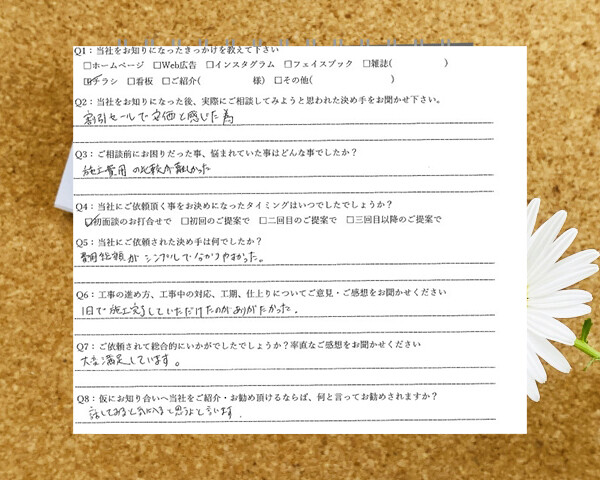 Q1：当社をお知りになったきっかけを教えて下さい
□ホームページ □Web広告 □インスタグラム □フェイスブック □雑誌( )
☑チラシ □看板 □ご紹介( 様) □その他( )
Q2：当社をお知りになった後、実際にご相談してみようと思われた決め手をお聞かせ下さい。
割引セールで安価と感じた為
Q3：ご相談前にお困りだった事、悩まれていた事はどんな事でしたか？
施工費用の比較が難しかった
Q4：当社にご依頼頂く事をお決めになったタイミングはいつでしたでしょうか？
☑初面談のお打合せで □初回のご提案で □二回目のご提案で □三回目以降のご提案で
Q5：当社にご依頼された決め手は何でしたか？
費用総額がシンプルで分かりやすかった。
Q6：工事の進め方、工事中の対応、工期、仕上りについてご意見・ご感想をお聞かせください
1日で施工完了していただけたのがありがたかった。
Q7：ご依頼されて総合的にいかがでしたでしょうか？率直なご感想をお聞かせください
大変満足しています。
Q8：仮にお知り合いへ当社をご紹介・お勧め頂けるならば、何と言ってお勧めされますか？
話してみると気に入ると思うよと言います.